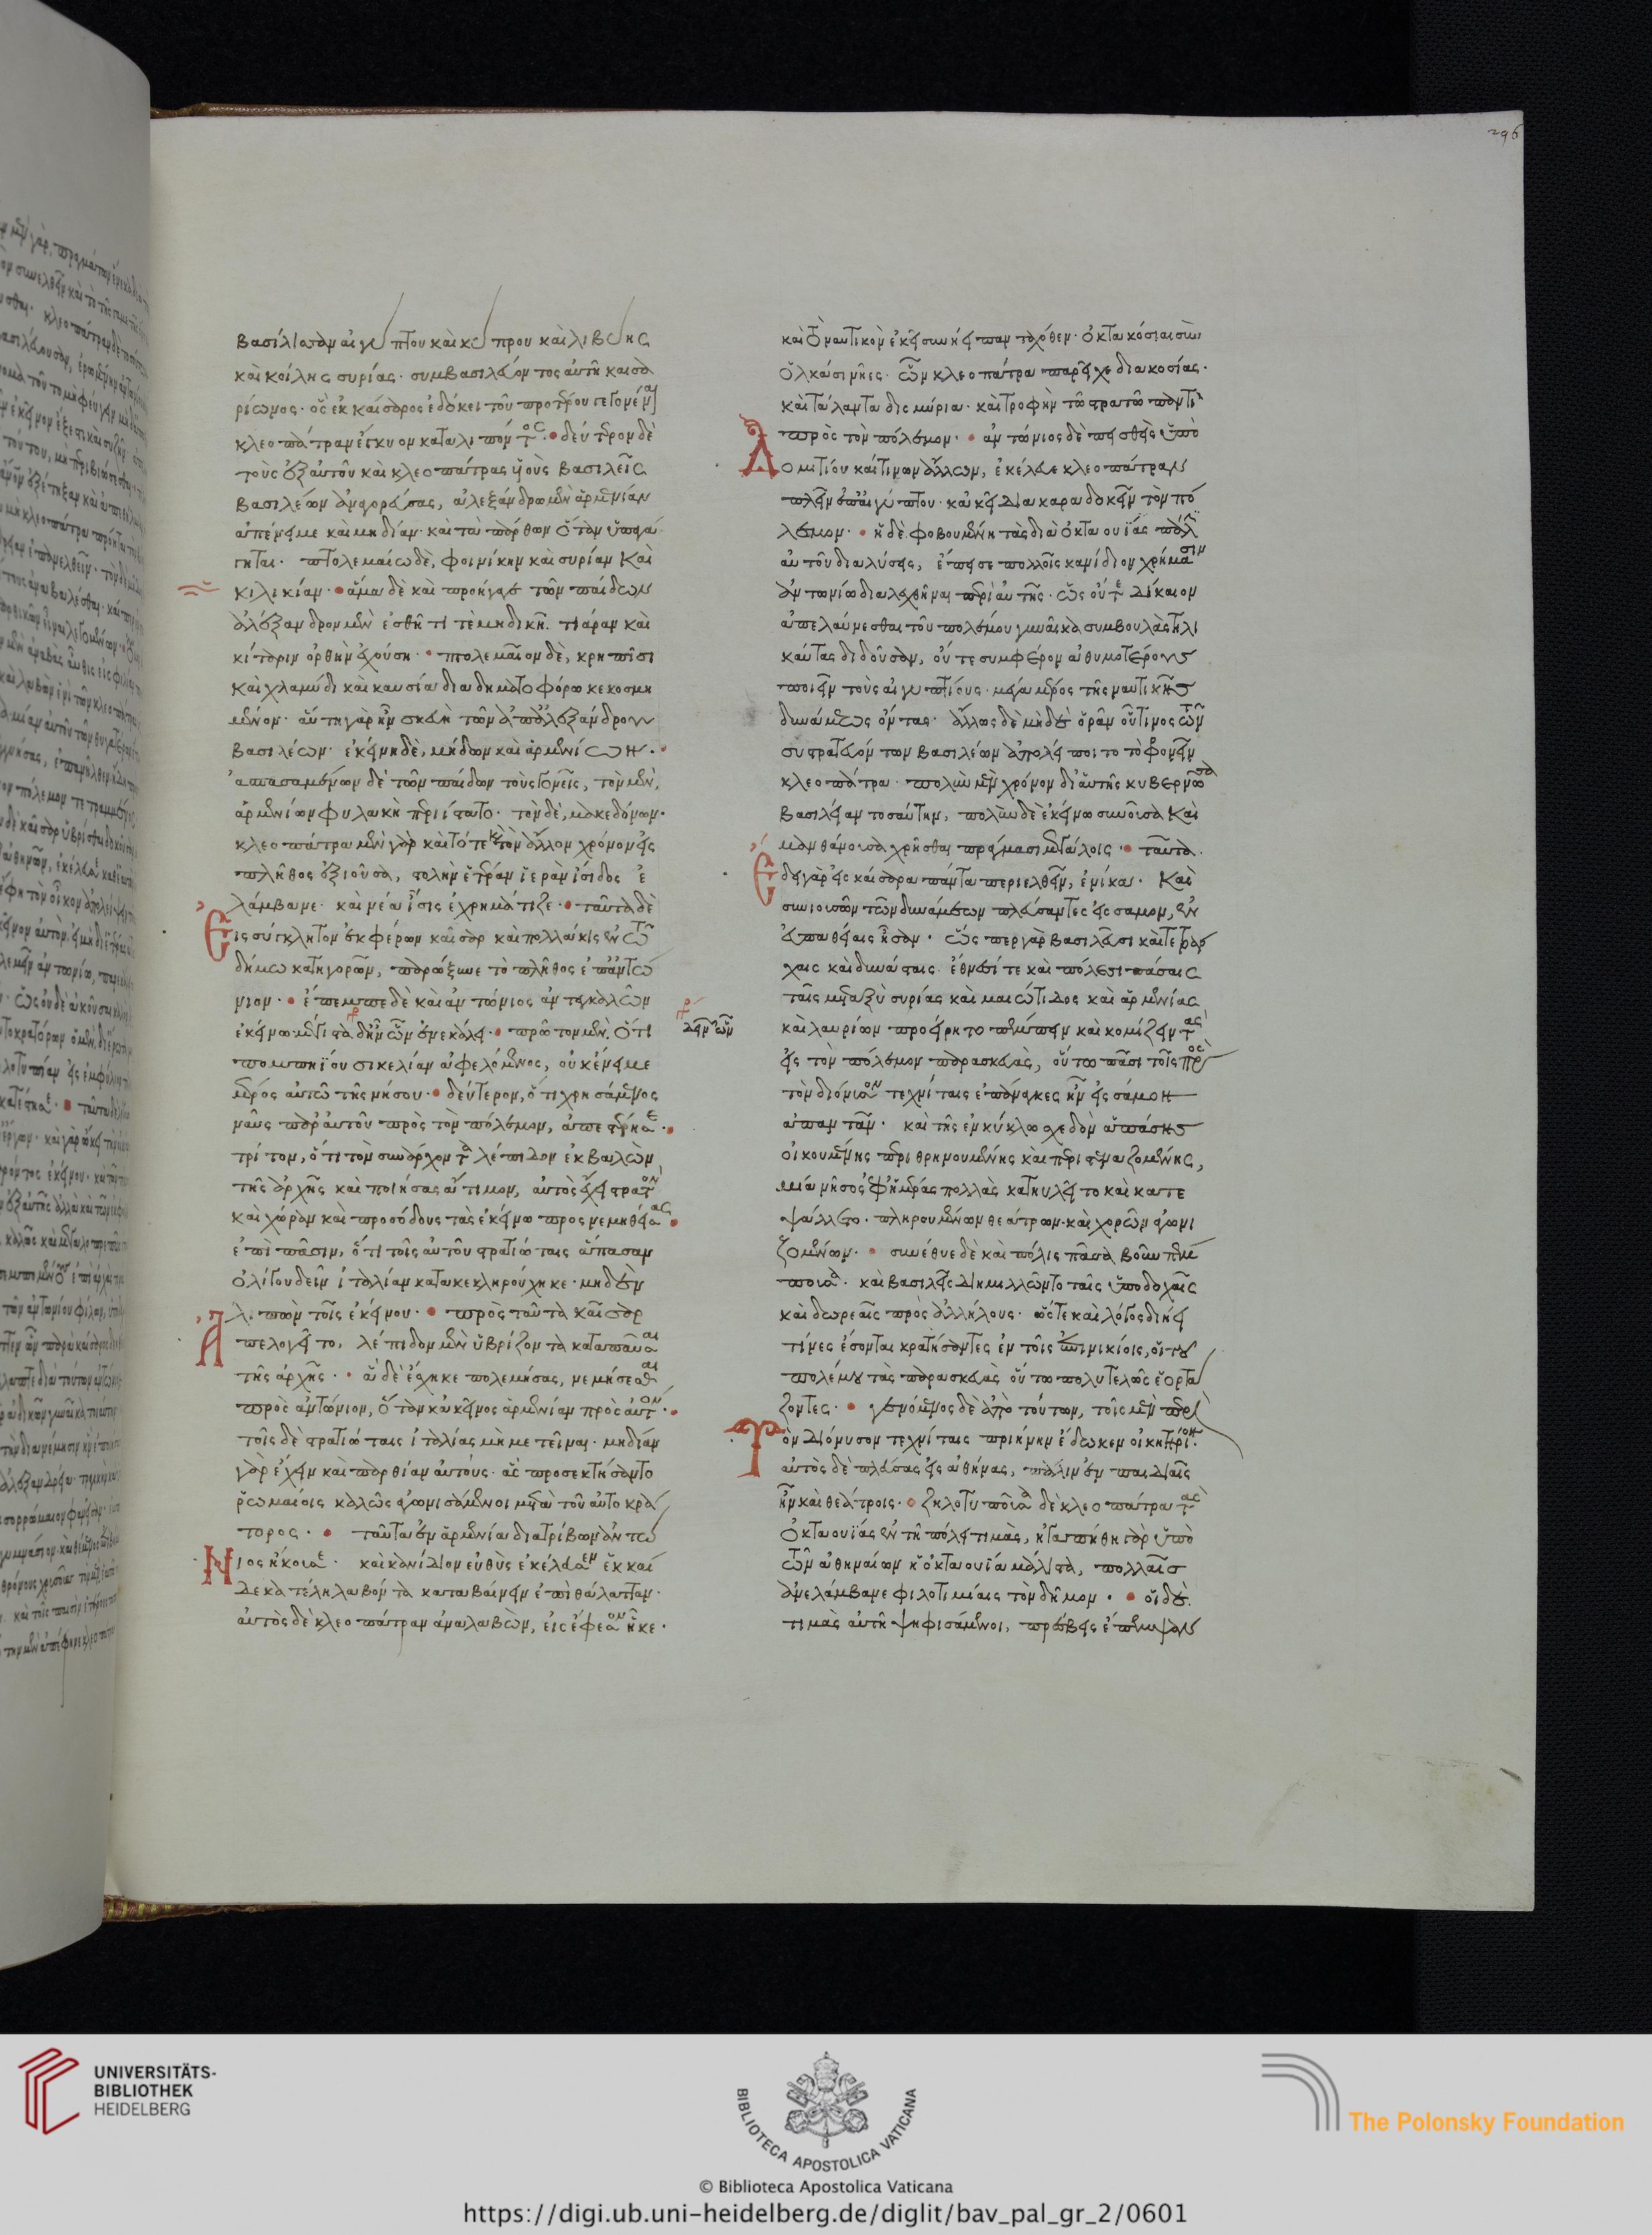 296
βασίλισσαν αἰγύπτου καὶ κύπρου καὶ λιβύης
καὶ κοίλης συρίας· συμβασιλεύοντος αὐτῆ καισα
ρίωνος· ὃς ἐκ καίσαρος ἐδόκει τοῦ προτέρου γεγονέναι
κλεοπάτραν ἔγκυον καταλιπόντος· δεύτερον δὲ
τοὺς ἐξ αὐτοῦ καὶ κλεοπάτρας υἱοὺς βασιλεῖς
βασιλέων ἀναγορεύσας, ἀλεξάνδρω μὲν ἀρμενίαν
ἀπένειμε καὶ μηδίαν· καὶ τὰ πάρθων ὅταν ὑπαγά
γηται· πτολεμαίω δὲ, φοινίκην καὶ συρίαν καὶ
κιλικίαν· ἅμα δὲ καὶ προήγαγε τῶν παίδων
ἀλέξανδρον μὲν ἐσθῆτι τε μηδικῆ· τιάραν καὶ
κίταριν ὀρθὴν ἐχούση· πτολεμαῖον δὲ, κρηπῖσι
καὶ χλαμύδι καὶ καυσία διαδηματοφόρω κεκοσμη
μένον· αὕτη γὰρ ἦν σκευὴ τῶν ἀπ' ἀλεξάνδρου
βασιλέων· ἐκείνη δὲ, μήδων καὶ ἀρμενίων·
ἀσπασαμένων δὲ τῶν παίδων τοὺς γονεῖς, τὸν μὲν,
ἀρμενίων φυλακὴ περιίστατο· τὸν δὲ, μακεδόνων·
κλεοπάτρα μὲν γὰρ καὶ τότε κ τὸν ἄλλον χρόνον εἰς
πλῆθος ἐξιοῦσα, στολὴν ἑτέραν ἱερὰν ἴσιδος ἐ
λάμβανε· καὶ νέα ἶσις ἐχρημάτιζε· ταῦτα δὲ
εἰς σύγκλητον ἐκφέρων καῖσαρ καὶ πολλάκις ἐν τῶ
δήμω κατηγορῶν, παρώξυνε τὸ πλῆθος ἐπ' ἀντώ
νιον· ἔπεμπε δὲ καὶ ἀντώνιος ἀντεγκαλῶν
ἐκείνω μέγιστα δ' ἦν ὧν ἐνεκάλει· πρῶτον μὲν, ὅτι
πομπηίου σικελίαν ἀφελόμενος, οὐκ ἔνειμε
μέρος αὐτῶ τῆς νήσου· δεύτερον, ὅτι χρησάμενος
ναῦς παρ' αὐτοῦ πρὸς τὸν πόλεμον, ἀπεστέρησε·
τρίτον, ὅτι τὸν συνάρχοντα λέπιδον ἐκβαλὼν
τῆς ἀρχῆς καὶ ποιήσας ἄτιμον, αὐτὸς ἔχει στρατὸν
καὶ χώραν καὶ προσόδους τὰς ἐκείνω προσνεμηθείσας
ἐπὶ πᾶσιν, ὅτι τοῖς αὐτοῦ στρατιώταις ἅπασαν
ὀλίγου δεῖν ἰταλίαν κατακεκληρούχηκε· μηδὲν
λιπὼν τοῖς ἐκείνου· πρὸς ταῦτα καῖσαρ
ἀπελογεῖτο, λέπιδον μὲν ὑβρίζοντα καταπαῦσαι
τῆς ἀρχῆς· ἃ δὲ ἔσχηκε πολεμήσας, νεμήσεσθαι
πρὸς ἀντώνιον, ὅταν κἀκεῖνος ἀρμενίαν πρὸς αὐτόν·
τοῖς δὲ στρατιώταις ἰταλίας μὴ μετεῖναι· μηδίαν
γὰρ ἔχειν καὶ παρθίαν αὐτούς· ἃς προσεκτήσαντο
ῥωμαίοις καλῶς ἀγωνισάμενοι μετὰ τοῦ αὐτοκρά
τορος· ταῦτα ἐν ἀρμενία διατρίβων ἀντώ
νιος ἤκουσε· καὶ κανίδιον εὐθὺς ἐκέλευσεν ἑκκαί
δεκα τέλη λαβόντα καταβαίνειν ἐπὶ θάλατταν·
αὐτὸς δὲ κλεοπάτραν ἀναλαβὼν, εἰς ἔφεσον ἧκε·
δ' ἦν ὧν
καὶ τὸ ναυτικὸν ἐκεῖ συνήει πανταχόθεν· ὀκτακόσιαι σὺν
ὁλκάσι νῆες· ὧν κλεοπάτρα παρεῖχε διακοσίας·
καὶ τάλαντα δισμύρια· καὶ τροφὴν τῶ στρατῶ παντὶ
πρὸς τὸν πόλεμον· ἀντώνιος δὲ πεισθεὶς ὑπὸ
Δομιτίου καί τινων ἄλλων, ἐκέλευε κλεοπάτραν
πλεῖν ἐπ' αἰγύπτου· κἀκεῖ διακαραδοκεῖν τὸν πό
λεμον· ἡ δὲ φοβουμένη τὰς δι' ὀκταουίας πάλιν
αὐτοῦ διαλύσεις, ἔπεισε πολλοῖς κανίδιον χρήμασιν
ἀντωνίω διαλεχθῆναι περὶ αὐτῆς· ὡς οὔτε δίκαιον
ἀπελαύνεσθαι τοῦ πολέμου γυναῖκα συμβουλὰς τηλι
καύτας διδοῦσαν, οὔτε συμφέρον ἀθυμοτέρους
ποιεῖν τοὺς αἰγυπτίους· μέγα μέρος τῆς ναυτικῆς
δυνάμεως ὄντας· ἄλλως δὲ μηδὲ ὁρᾶν οὗτινος τῶν
συστρατευόντων βασιλέων ἀπολείποιτο τὸ φρονεῖν
κλεοπάτρα· πολὺν μὲν χρόνον δι' αὑτῆς κυβερνῶσα
βασιλείαν τοσαύτην, πολὺν δὲ ἐκείνω συνοῦσα καὶ
μανθάνουσα χρῆσθαι πράγμασι μεγάλοις· ταῦτα·
ἔδει γὰρ εἰς καίσαρα πάντα περιελθεῖν, ἐνίκα· καὶ
συνιουσῶν τῶν δυνάμεων πλεύσαντες εἰς σάμον, ἐν
εὐπαθείαις ἦσαν· ὥσπερ γὰρ βασιλεῦσι καὶ τετράρ
χαις καὶ δυνάσταις ἔθνεσί τε καὶ πόλεσι πάσαις
ταῖς μεταξὺ συρίας καὶ μαιώτιδος καὶ ἀρμενίας
καὶ λαυρίων προείρητο πέμπειν καὶ κομίζειν τὰς
εἰς τὸν πόλεμον παρασκευὰς, οὕτω πᾶσι τοῖς περὶ
τὸν διόνυσον τεχνίταις ἐπάναγκες ἦν εἰς σάμον
ἀπαντᾶν· καὶ τῆς ἐν κύκλω σχεδὸν ἁπάσης
οἰκουμένης περιθρηνουμένης καὶ περιστεναζομένης,
μία νῆσος ἐφ' ἡμέρας πολλὰς κατηυλεῖτο καὶ κατε
ψάλλετο· πληρουμένων θεάτρων καὶ χορῶν ἀγωνι
ζομένων· συνέθυε δὲ καὶ πόλις πᾶσα βοῦν πέμ
πουσα· καὶ βασιλεῖς διημιλλῶντο ταῖς ὑποδοχαῖς
καὶ δωρεαῖς πρὸς ἀλλήλους· ὥστε καὶ λόγος διήει
τίνες ἔσονται κρατήσαντες ἐν τοῖς ἐπινικίοις, οἱ τοῦ
πολέμου τὰς παρασκευὰς οὕτω πολυτελῶς ἑορτά
ζοντες· γενόμενος δὲ ἀπὸ τούτων, τοῖς μὲν περὶ
τὸν διόνυσον τεχνίταις πριήνην ἔδωκεν οἰκητήριον·
αὐτὸς δὲ πλεύσας εἰς ἀθήνας, πάλιν ἐν παιδιαῖς
ἦν καὶ θεάτροις· ζηλοτυποῦσα δὲ κλεοπάτρα τὰς
ὀκταουίας ἐν τῆ πόλει τιμὰς, ἠγαπήθη γὰρ ὑπὸ
τῶν ἀθηναίων ἡ ὀκταουία μάλιστα, πολλαῖς
ἀνελάμβανε φιλοτιμίαις τὸν δῆμον· οἱ δὲ
τιμὰς αὐτῆ ψηφισάμενοι, πρέσβεις ἔπεμψαν
UNIVERSITÄTS-
BIBLIOTHEK
HEIDELBERG
BIBLIOTECA APOSTOLICA VATICANA
The Polonsky Foundation
© Biblioteca Apostolica Vaticana
https://digi.ub.uni-heidelberg.de/diglit/bav_pal_gr_2/0601